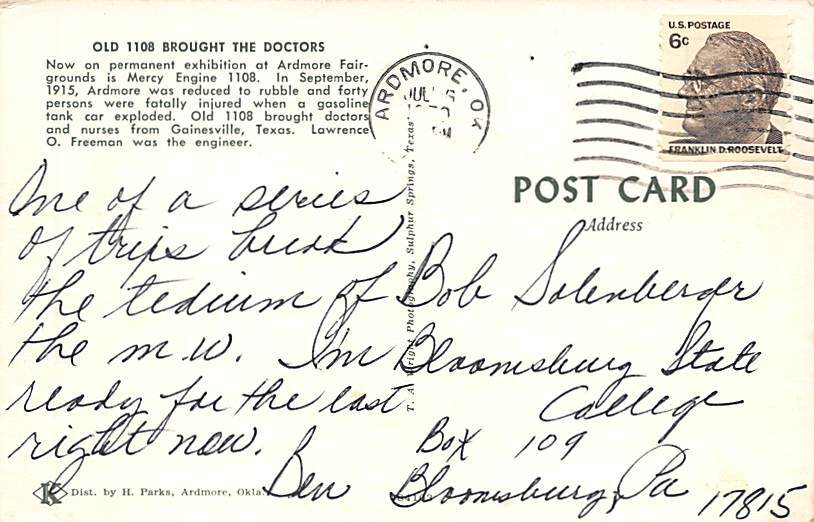 OLD 1108 BROUGHT THE DOCTORS
Now on permanent exhibition at Ardmore Fair-
grounds is Mercy Engine 1108. In September,
1915, Ardmore was reduced to rubble and forty
persons were fatally injured when a gasoline
tank car exploded. Old 1108 brought doctors
and nurses from Gainesville, Texas. Lawrence
O. Freeman was the engineer.
One of a series
of trips break
the tedium of
the m.w. I'm
ready for the east
right now.
Ben
K Dist. by H. Parks, Ardmore, Okla.
Wright Photography, Sulphur Springs, Texas
ARDMORE, OK
U.S. POSTAGE
6c
FRANKLIN D. ROOSEVELT
POST CARD
Address
Bob Solenberger
Bloomsburg State
College
Box 109
Bloomsburg, Pa
17815